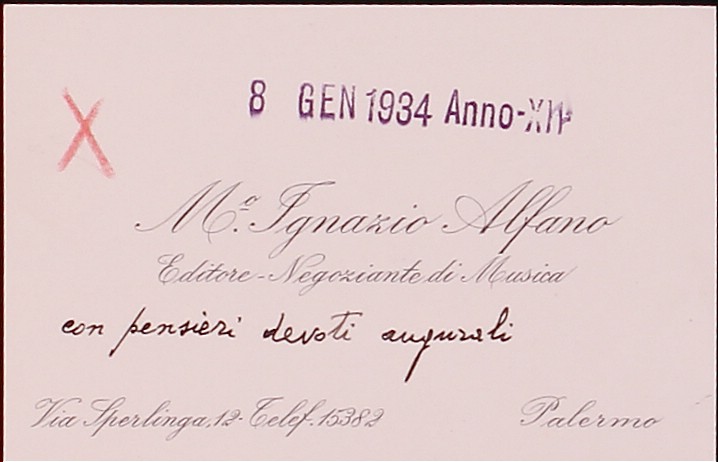 X
8 GEN 1934 Anno-XII
M.º Ignazio Alfano
Editore-Negoziante di Musica
con pensieri devoti augurali
Via Sperlinga, 12 - Telef. 15382 Palermo